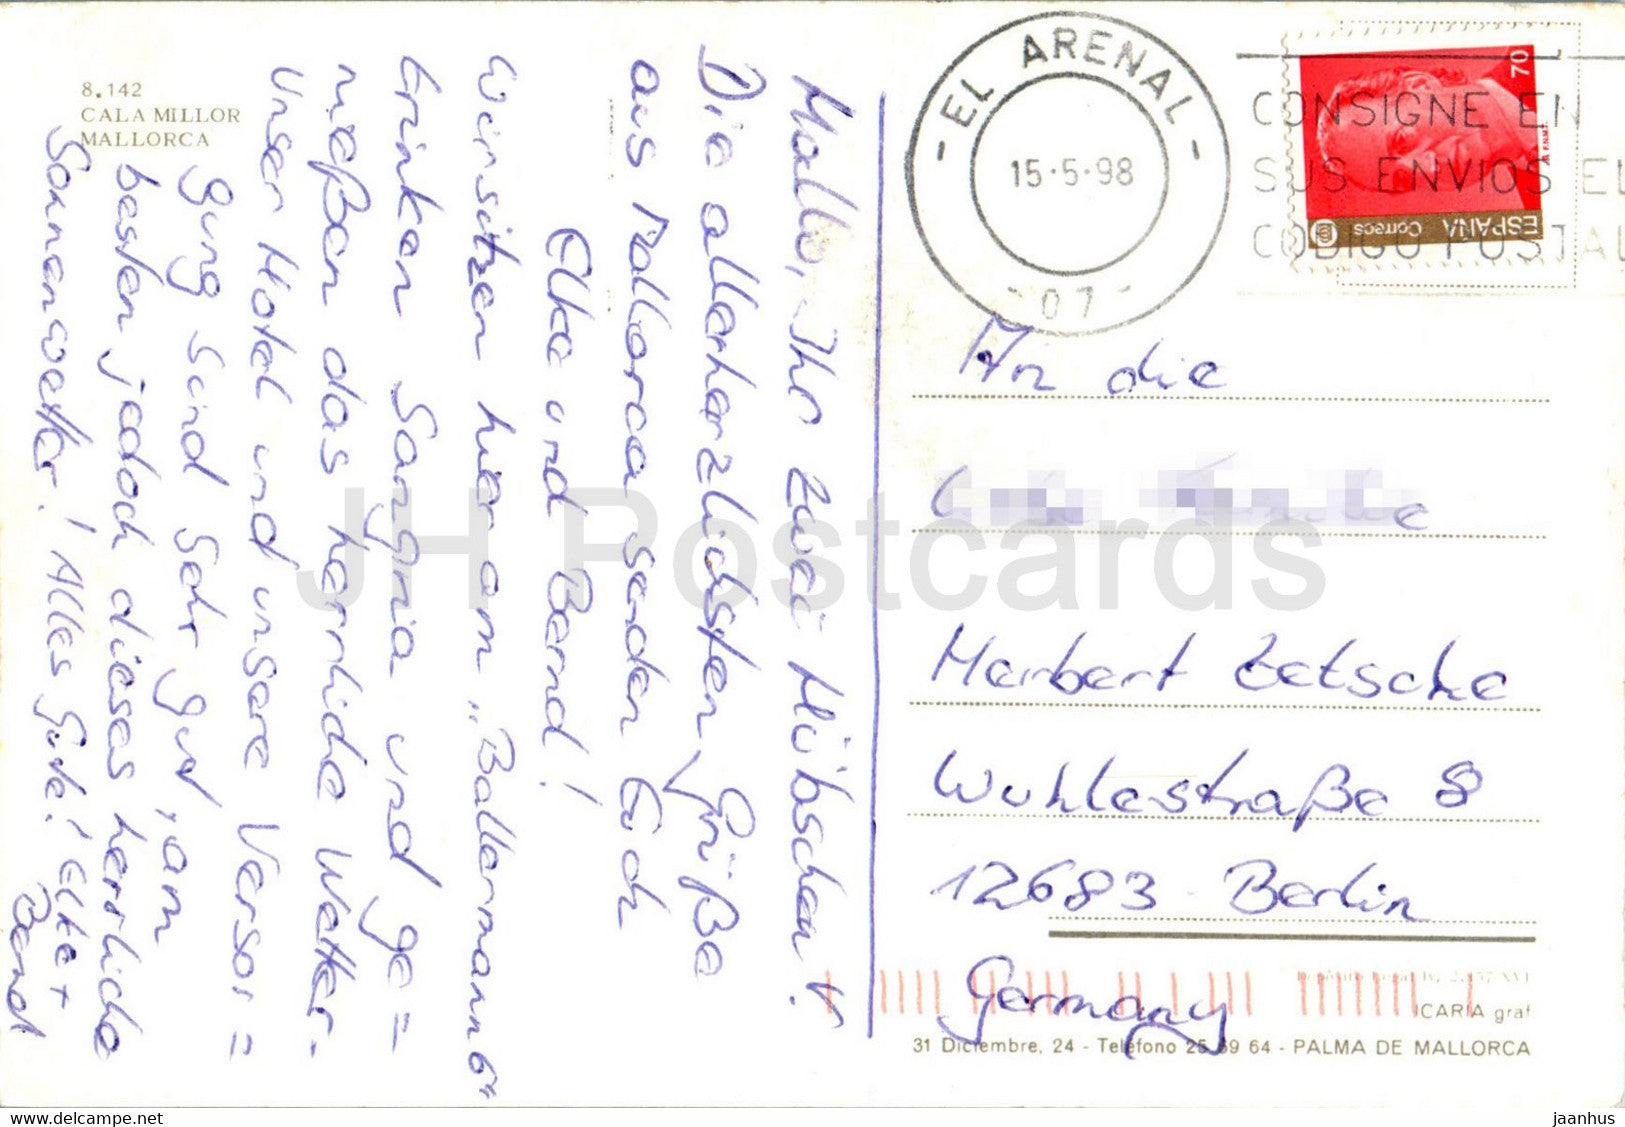 8.142
CALA MILLOR
MALLORCA
Hallo, Ihr zwei Hübschen!
Die allerherzlichsten Grüße
aus Mallorca senden Euch
Elke und Bernd!
Wir sitzen hier am „Ballermann 6“
trinken Sangria und ge=
nießen das herrliche Wetter.
Unser Hotel und unsere Versor=
gung sind sehr gut, am
besten jedoch dieses herrliche
Sonnenwetter! Alles Gute! Elke +
Bernd
- EL ARENAL -
15·5·98
- 07 -
CONSIGNE EN
SUS ENVIOS EL
CODIGO POSTAL
70
ESPAÑA Correos
An die
Herbert Zetsche
Wuhlestraße 8
12683 Berlin
Germany
ICARIA graf
31 Diciembre, 24 - Teléfono 25 69 64 - PALMA DE MALLORCA
JH Postcards
www.delcampe.net
jaanhus